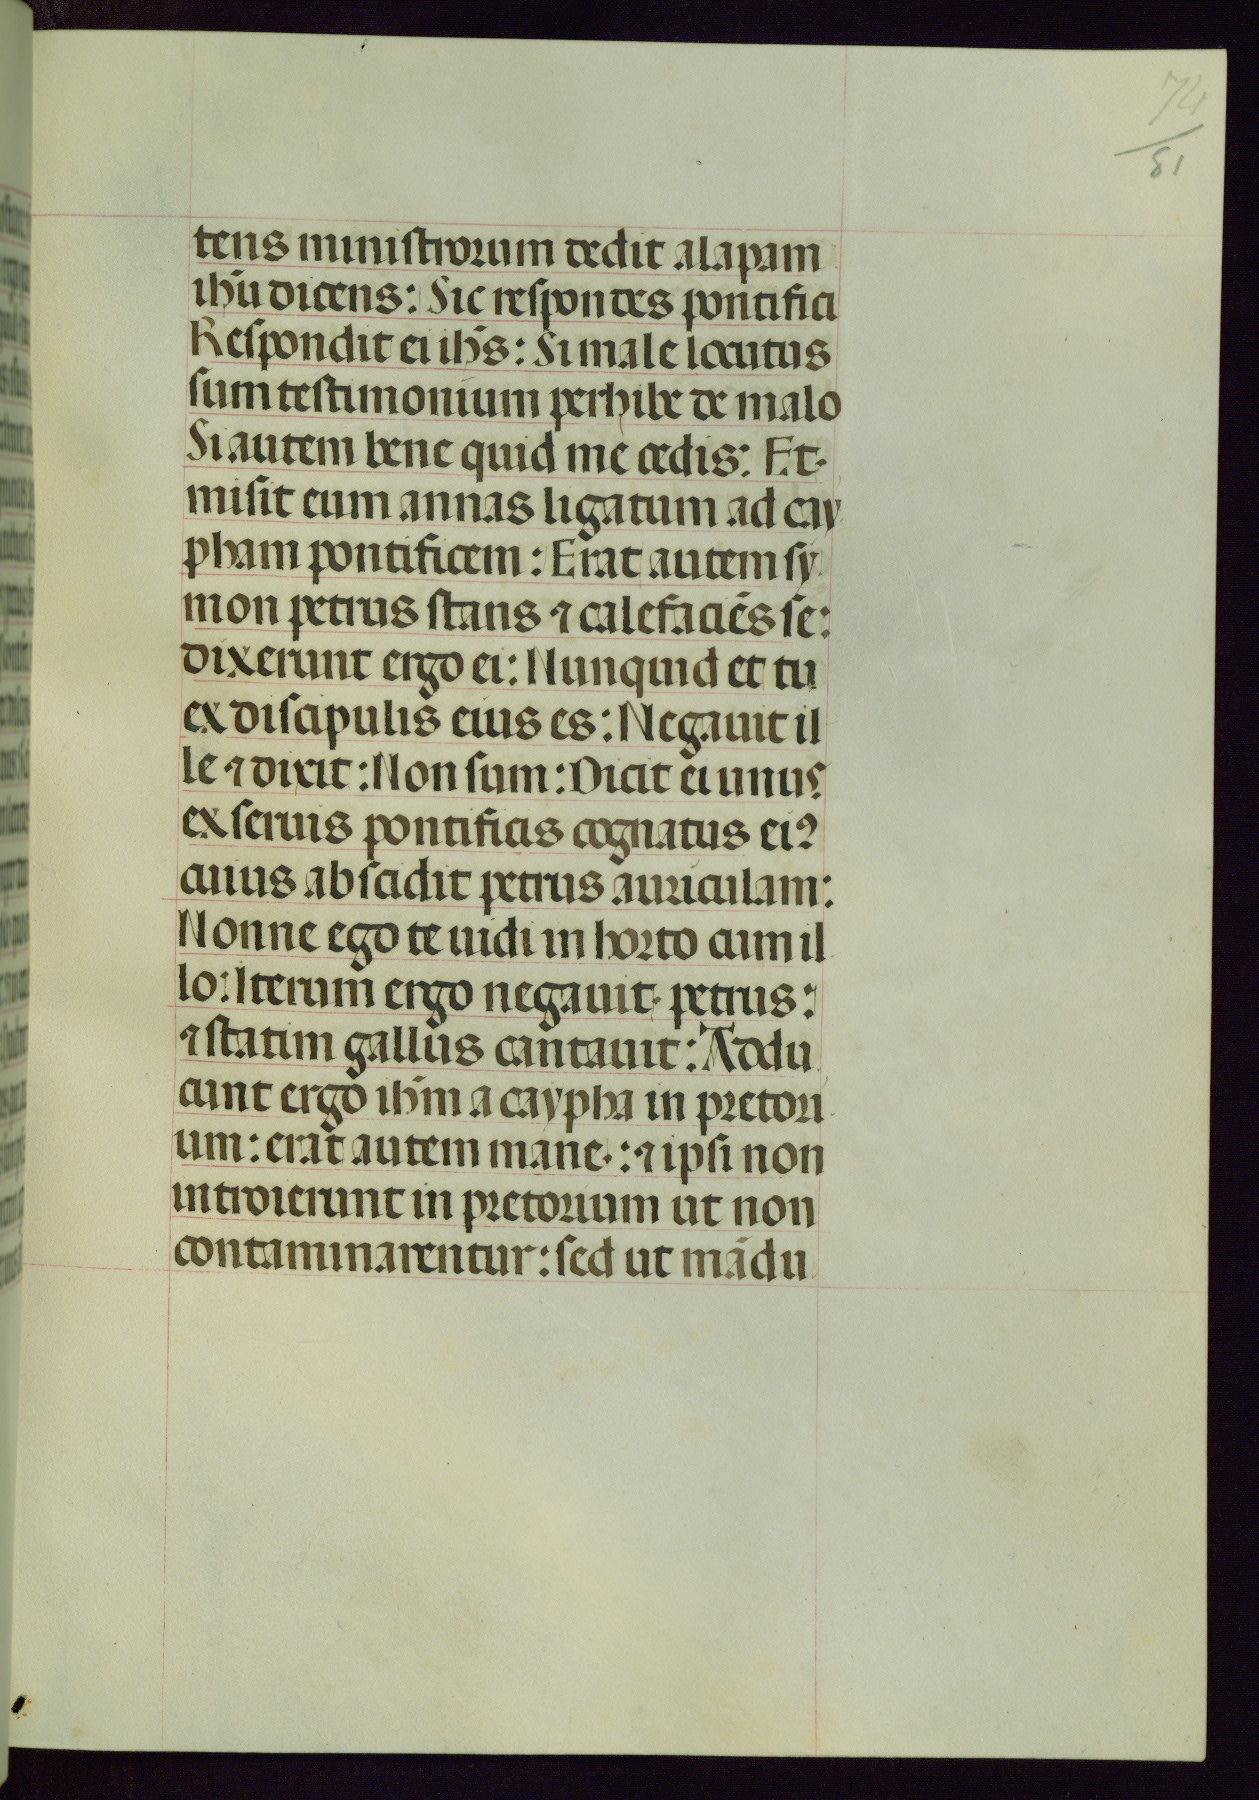 74
81
tens ministrorum dedit alapam
ihū dicens: Sic respondes pontifici
Respondit ei ihs̄: Si male locutus
sum testimonium perhibe de malo
Si autem bene quid me cedis: Et
misit eum annas ligatum ad cay
pham pontificem: Erat autem sy
mon petrus stans ⁊ calefaciēs se:
dixerunt ergo ei: Nunquid et tu
ex discipulis eius es: Negauit il
le ⁊ dixit: Non sum: Dicit ei unus
ex seruis pontificis cognatus ei?
cuius abscidit petrus auriculam:
Nonne ego te uidi in horto cum il
lo: Iterum ergo negauit petrus:
⁊ statim gallus cantauit: Addu
cunt ergo ihm̄ a caypha in pretori
um: erat autem mane: ⁊ ipsi non
introierunt in pretorium ut non
contaminarentur: sed ut mādu